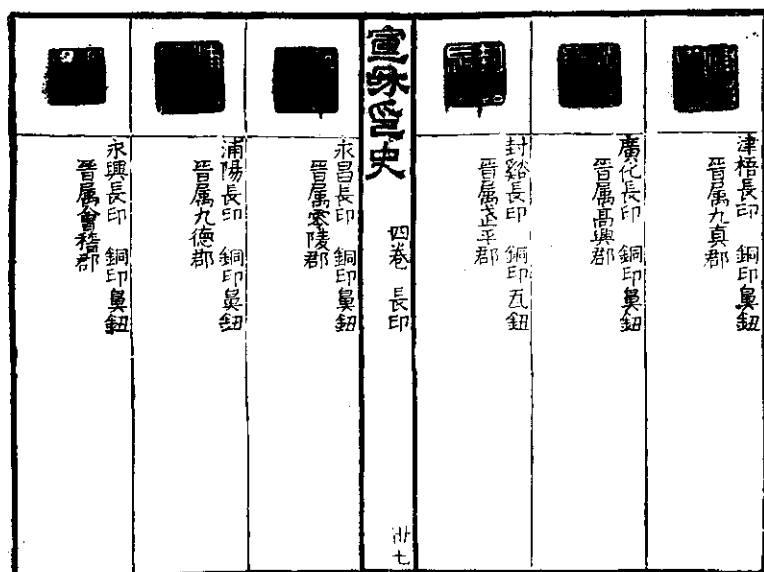 津梧長印　銅印鼻鈕
晉属九真郡
廣化長印　銅印鼻鈕
晉属髙興郡
封谿長印　銅印瓦鈕
晉属武平郡
宣龢印史
四巻　長印
卅七
永昌長印　銅印鼻鈕
晉属零陵郡
浦陽長印　銅印鼻鈕
晉属九德郡
永興長印　銅印鼻鈕
晉属會稽郡